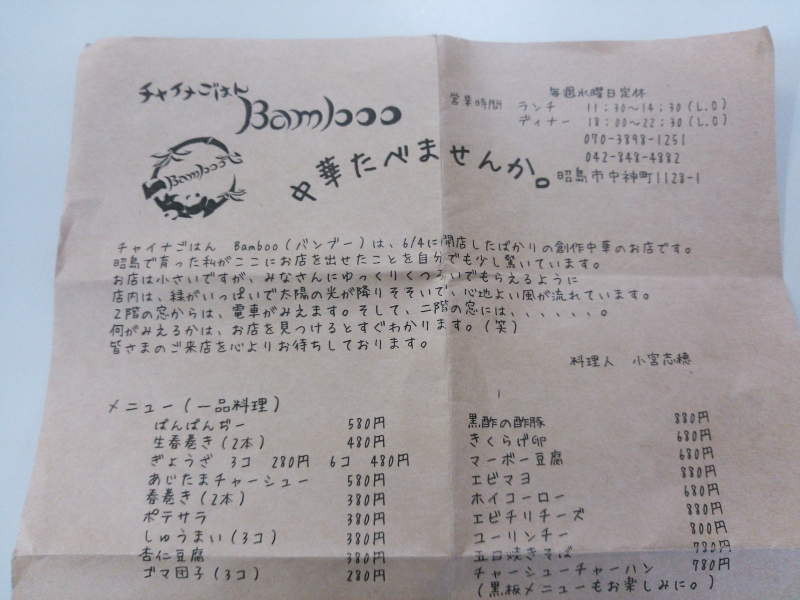 チャイナごはん
Bamboo
Bamboo
中華たべませんか。
毎週水曜日定休
営業時間 ランチ 11:30〜14:30(L.O)
ディナー 18:00〜22:30(L.O)
070-3898-1251
042-848-4882
昭島市中神町1128-1
チャイナごはん Bamboo(バンブー)は、6/4に開店したばかりの創作中華のお店です。
昭島で育った私がここにお店を出せたことを自分でも少し驚いています。
お店は小さいですが、みなさんにゆっくりくつろいでもらえるように
店内は、緑がいっぱいで太陽の光が降りそそいで、心地よい風が流れています。
2階の窓からは、電車がみえます。そして、二階の窓には、、、、、、。
何がみえるかは、お店を見つけるとすぐわかります。(笑)
皆さまのご来店を心よりお待ちしております。
料理人 小宮志穂
メニュー(一品料理)
ばんばんぢー 580円
生春巻き(2本) 480円
ぎょうざ 3コ 280円 6コ 480円
あじたまチャーシュー 580円
春巻き(2本) 380円
ポテサラ 380円
しゅうまい(3コ) 380円
杏仁豆腐 380円
ゴマ団子(3コ) 280円
黒酢の酢豚 880円
きくらげ卵 680円
マーボー豆腐 680円
エビマヨ 880円
ホイコーロー 680円
エビチリチーズ 880円
ユーリンチー 800円
五目焼きそば 780円
チャーシューチャーハン 780円
(黒板メニューもお楽しみに。)